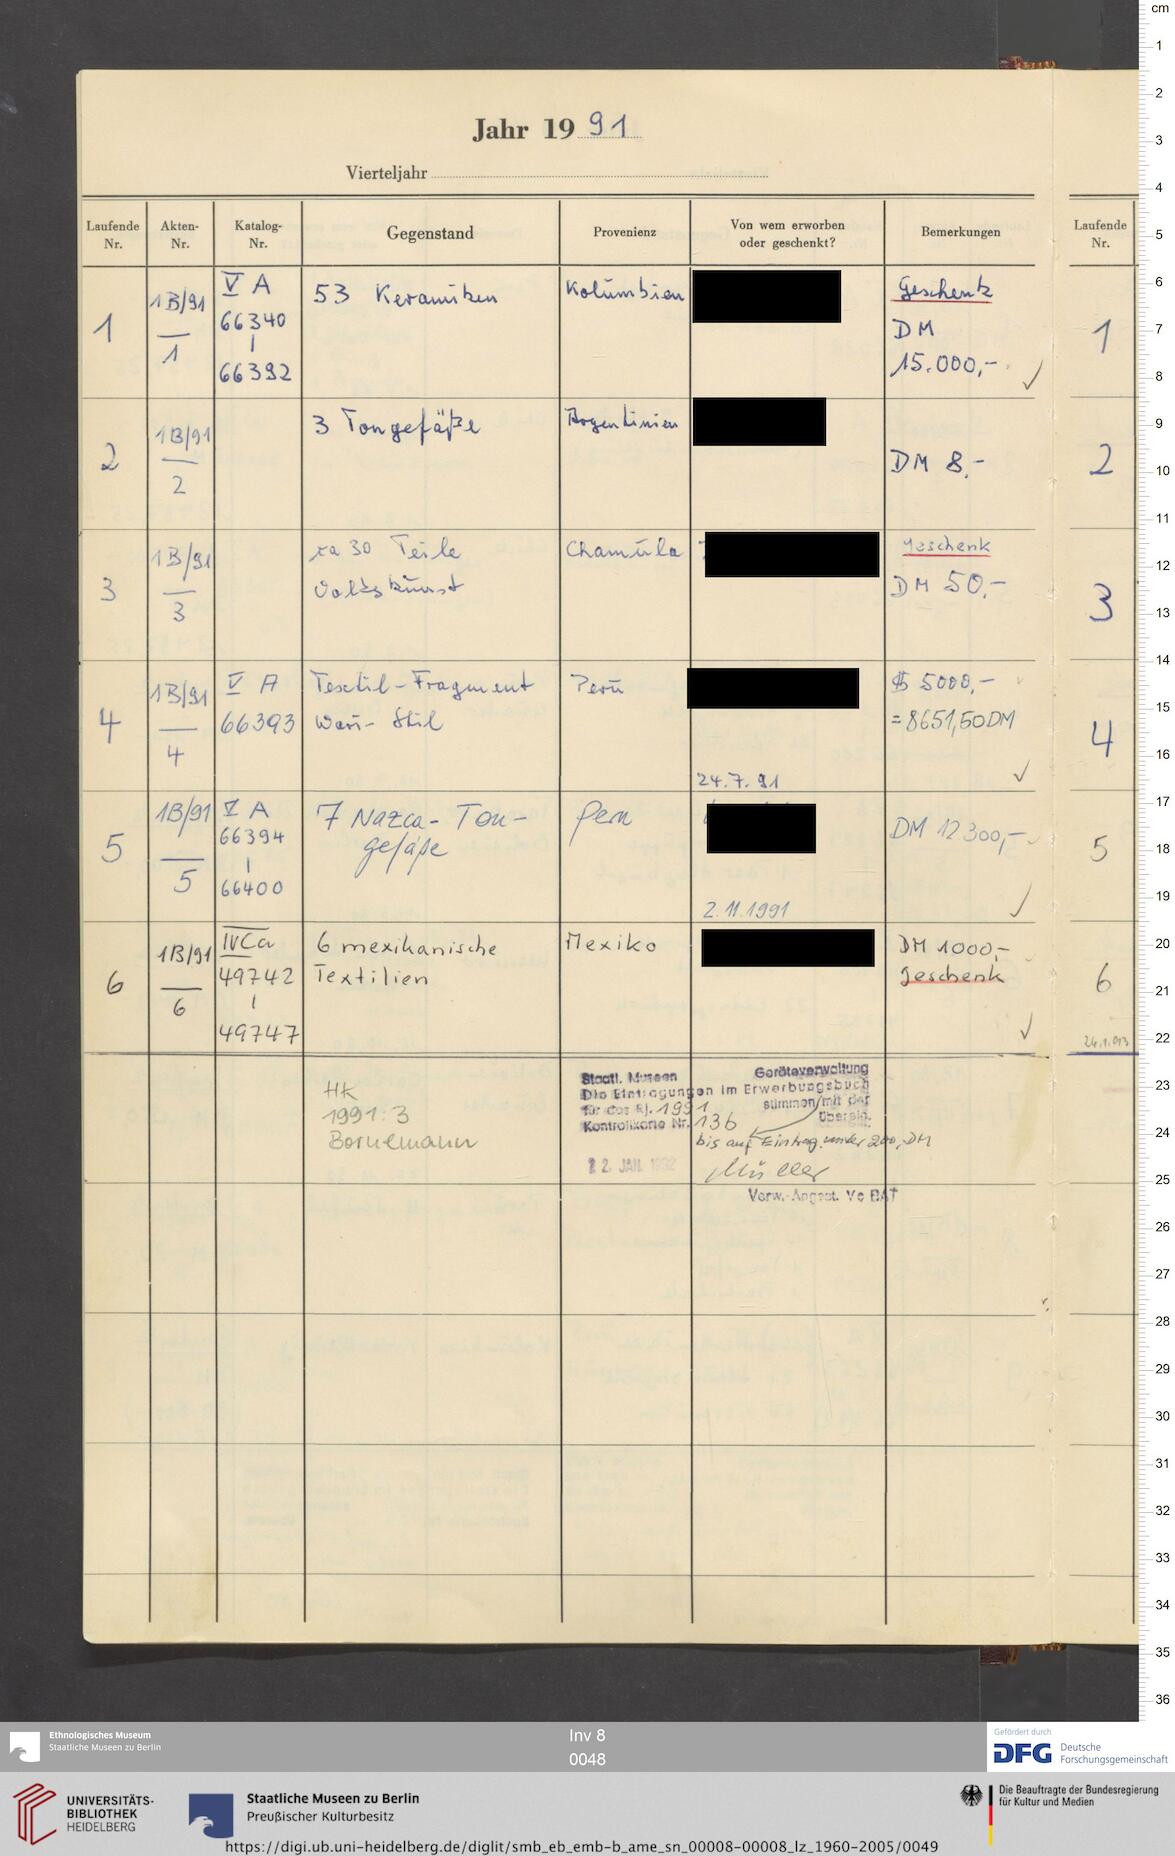 Jahr 1991
Vierteljahr
Laufende Nr.
Akten-Nr.
Katalog-Nr.
Gegenstand
Provenienz
Von wem erworben oder geschenkt?
Bemerkungen
Laufende Nr.
1
1B/91
1
V A
66340
|
66392
53 Keramiken
Kolumbien
Geschenk
DM
15.000,-
✓
1
2
1B/91
2
3 Tongefäße
Argentinien
DM 8,-
2
3
1B/91
3
ca 30 Teile
Volkskunst
Chamula
Geschenk
DM 50,-
3
4
1B/91
4
V A
66393
Textil-Fragment
Wari-Stil
Peru
24.7.91
$ 5000,-
=8651,50DM
✓
4
5
1B/91
5
V A
66394
|
66400
7 Nazca-Ton-
gefäße
Peru
2.11.1991
DM 12300,-
✓
5
6
1B/91
6
IV Ca
49742
|
49747
6 mexikanische
Textilien
Mexiko
DM 1000,-
Geschenk
✓
6
HK
1991:3
Bornemann
Staatl. Museen
Geräteverwaltung
Die Eintragungen im Erwerbungsbuch
für das Rj. 1991
stimmen/mit der
Kontrollkarte Nr. 136
überein.
bis auf Eintrag. unter 200,DM
22. JAN. 1992
Müller
Verw.-Angest. Vc BAT
cm
1
2
3
4
5
6
7
8
9
10
11
12
13
14
15
16
17
18
19
20
21
22
23
24
25
26
27
28
29
30
31
32
33
34
35
36
Ethnologisches Museum
Staatliche Museen zu Berlin
Inv 8
0048
Gefördert durch
DFG Deutsche
Forschungsgemeinschaft
UNIVERSITÄTS-
BIBLIOTHEK
HEIDELBERG
Staatliche Museen zu Berlin
Preußischer Kulturbesitz
Die Beauftragte der Bundesregierung
für Kultur und Medien
https://digi.ub.uni-heidelberg.de/diglit/smb_eb_emb-b_ame_sn_00008-00008_lz_1960-2005/0049